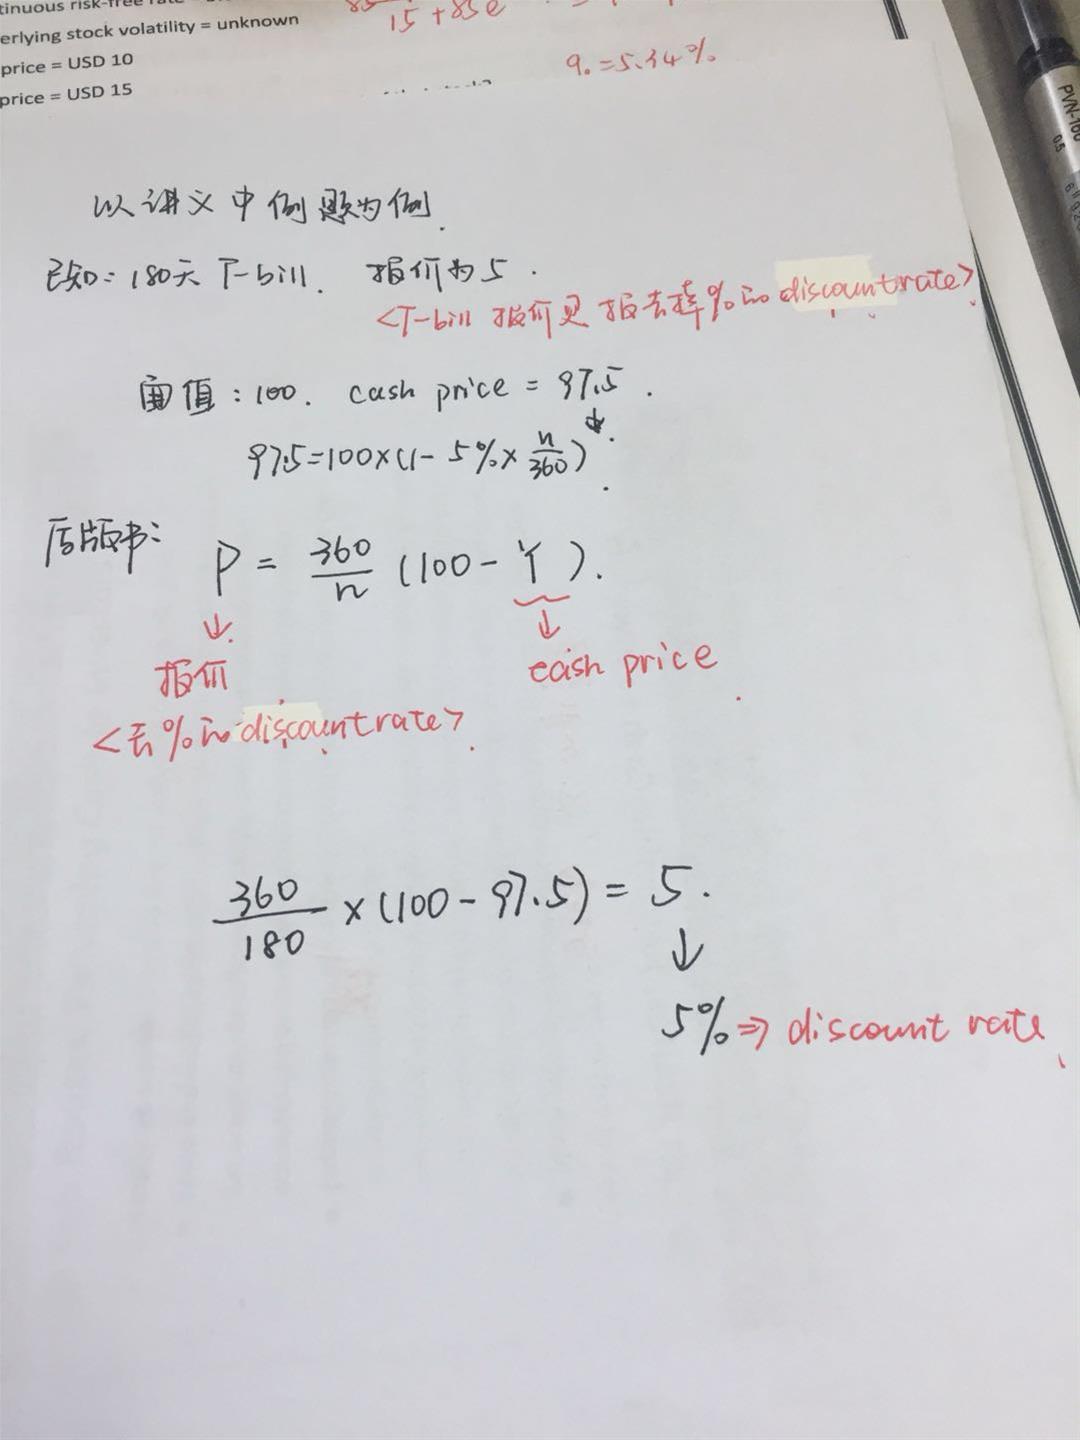 tinuous risk-free rate
15 + 85e
erlying stock volatility = unknown
price = USD 10
q. = 5.34%
price = USD 15
以讲义中例题为例.
已知: 180天 T-bill. 报价为5.
<T-bill 报价见 报去掉%的 discount rate>
面值: 100. cash price = 97.5.
97.5=100×(1- 5%× n/360)
原版书:
P = 360/n (100-Y).
报价
cash price
<去%的discount rate>
360/180 × (100-97.5) = 5.
5% ⇒ discount rate
PVN-160
0.5